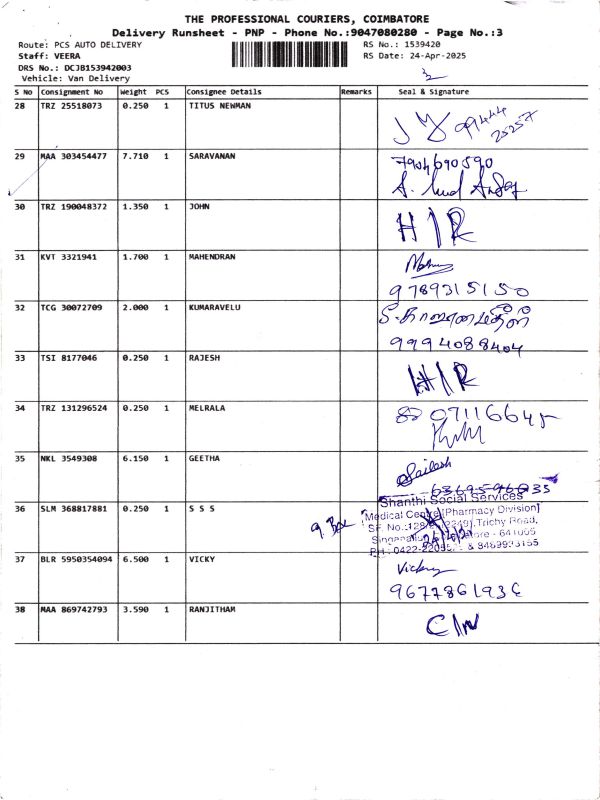 THE PROFESSIONAL COURIERS, COIMBATORE
Delivery Runsheet - PNP - Phone No.:9047080280 - Page No.:3
Route: PCS AUTO DELIVERY RS No.: 1539420
Staff: VEERA RS Date: 24-Apr-2025
DRS No.: DCJB153942003
Vehicle: Van Delivery
S No Consignment No Weight PCS Consignee Details Remarks Seal & Signature
28 TRZ 25518073 0.250 1 TITUS NEWMAN
99444
25257
29 MAA 303454477 7.710 1 SARAVANAN 7904690590
30 TRZ 190048372 1.350 1 JOHN H/R
31 KVT 3321941 1.700 1 MAHENDRAN
9789315150
32 TCG 30072709 2.000 1 KUMARAVELU
9994088404
33 TSI 8177046 0.250 1 RAJESH H/R
34 TRZ 131296524 0.250 1 MELRALA
35 NKL 3549308 6.150 1 GEETHA Sailesh
6369596035
36 SLM 368817881 0.250 1 S S S Shanthi Social Services
Medical Centre [Pharmacy Division]
Trichy Road,
641005
PH : 0422-
37 BLR 5950354094 6.500 1 VICKY Vickey
38 MAA 869742793 3.590 1 RANJITHAM